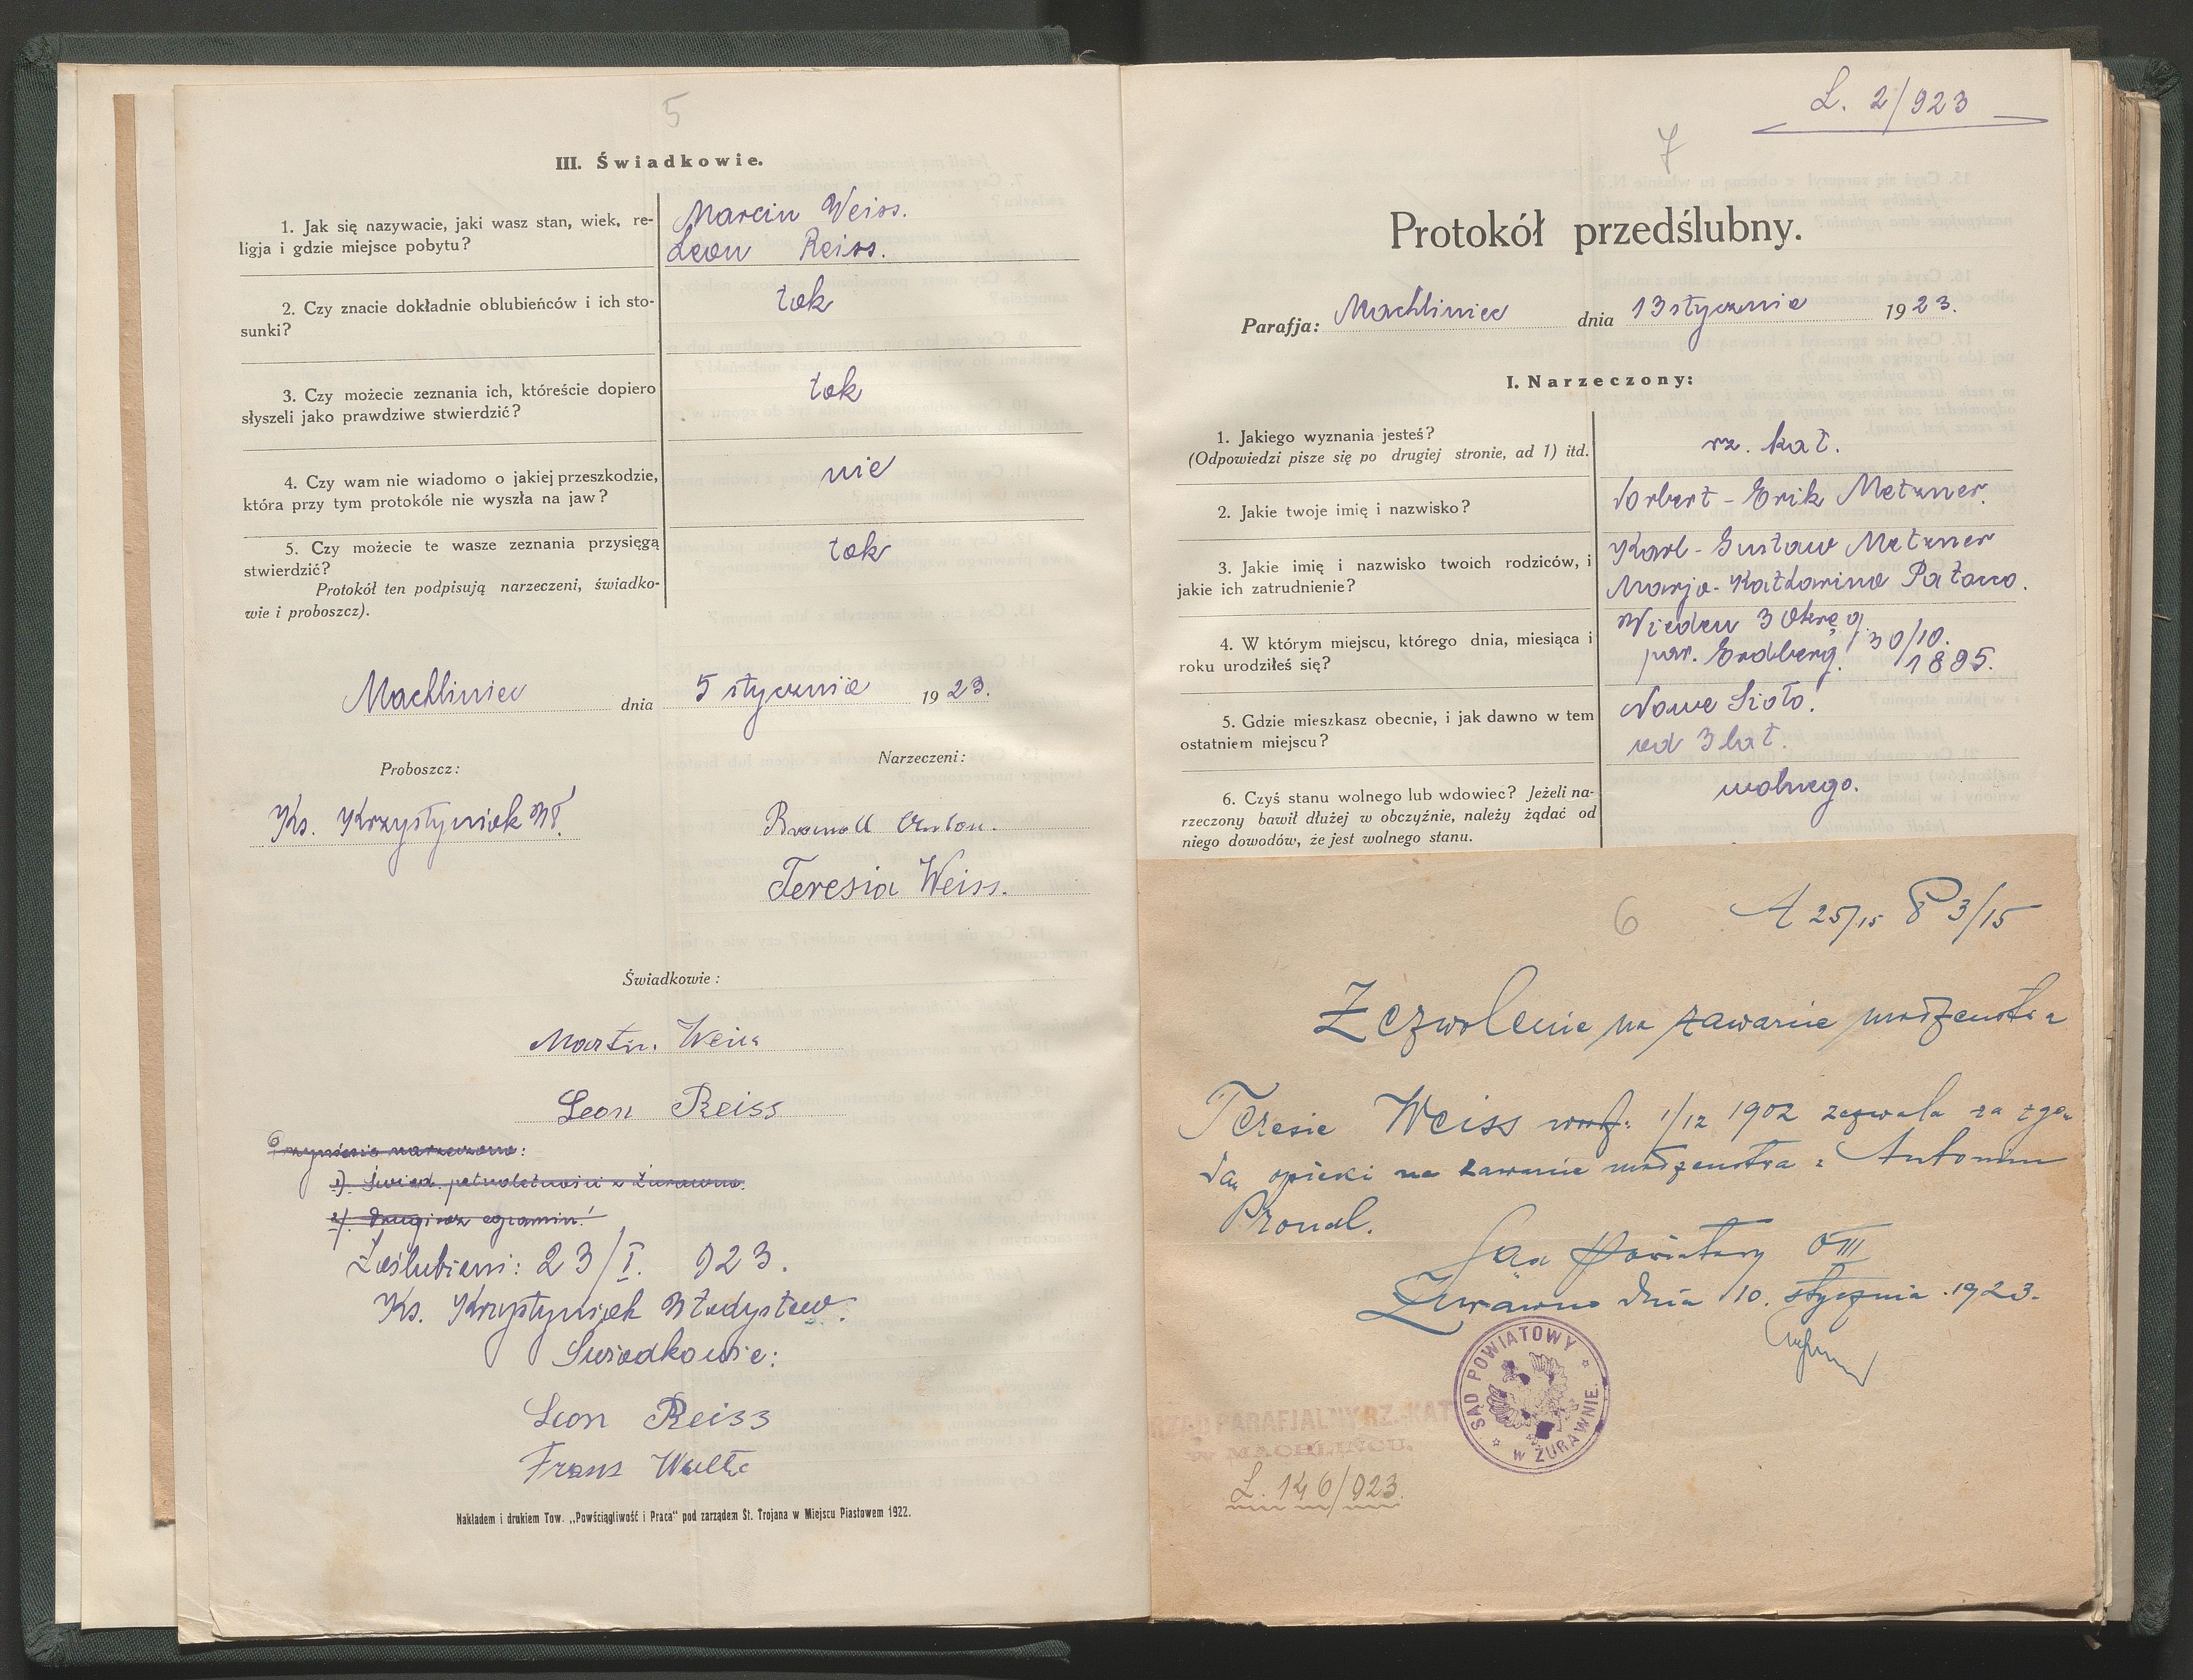 5
III. Świadkowie.
1. Jak się nazywacie, jaki wasz stan, wiek, re-
ligja i gdzie miejsce pobytu?
Marcin Weiss.
Leon Reiss.
2. Czy znacie dokładnie oblubieńców i ich sto-
sunki?
tak
3. Czy możecie zeznania ich, któreście dopiero
słyszeli jako prawdziwe stwierdzić?
tak
4. Czy wam nie wiadomo o jakiej przeszkodzie,
która przy tym protokóle nie wyszła na jaw?
nie
5. Czy możecie te wasze zeznania przysięgą
stwierdzić?
tak
Protokół ten podpisują narzeczeni, świadko-
wie i proboszcz).
Machliniec dnia 5 stycznia 1923.
Proboszcz:
Narzeczeni:
Ks. Krzystyniak Wł.
Anton.
Teresia Weiss.
Świadkowie:
Martin Weiss
Leon Reiss
Przyniesie narzeczona:
1). Świad. pełnoletności z Żurawna.
2). Drugi raz egzamin!
Zaślubieni: 23/I. 923.
Ks. Krzystyniak Władysław.
Świadkowie:
Leon Reiss
Franz
Nakładem i drukiem Tow. „Powściągliwość i Praca" pod zarządem St. Trojana w Miejscu Piastowem 1922.
L. 2/923
7
Protokół przedślubny.
Parafja: Machliniec dnia 13 stycznia 1923.
I. Narzeczony:
1. Jakiego wyznania jesteś?
(Odpowiedzi pisze się po drugiej stronie, ad 1) itd.
rz. kat.
2. Jakie twoje imię i nazwisko?
Norbert - Erik Metzner.
3. Jakie imię i nazwisko twoich rodziców, i
jakie ich zatrudnienie?
Karl - Gustaw Metzner
Marja - Katharina
4. W którym miejscu, którego dnia, miesiąca i
roku urodziłeś się?
Wiedeń 3 Okręg.
par. Erdberg. 30/10.
1895.
5. Gdzie mieszkasz obecnie, i jak dawno w tem
ostatniem miejscu?
Nowe Sioło.
od 3 lat.
6. Czyś stanu wolnego lub wdowiec? Jeżeli na-
rzeczony bawił dłużej w obczyźnie, należy żądać od
niego dowodów, że jest wolnego stanu.
wolnego.
6
A 25/15 P 3/15
Zezwolenie na zawarcie małżeństwa
Teresie Weiss urodz. 1/12 1902 zezwala za zgo-
dą opieki na zawarcie małżeństwa z Antonim
Sąd Powiatowy O III
Żurawno dnia 10. stycznia 1923.
SĄD POWIATOWY W ŻURAWNIE.
URZĄD PARAFJALNY RZ.-KAT.
W MACHLIŃCU.
L. 146/923.